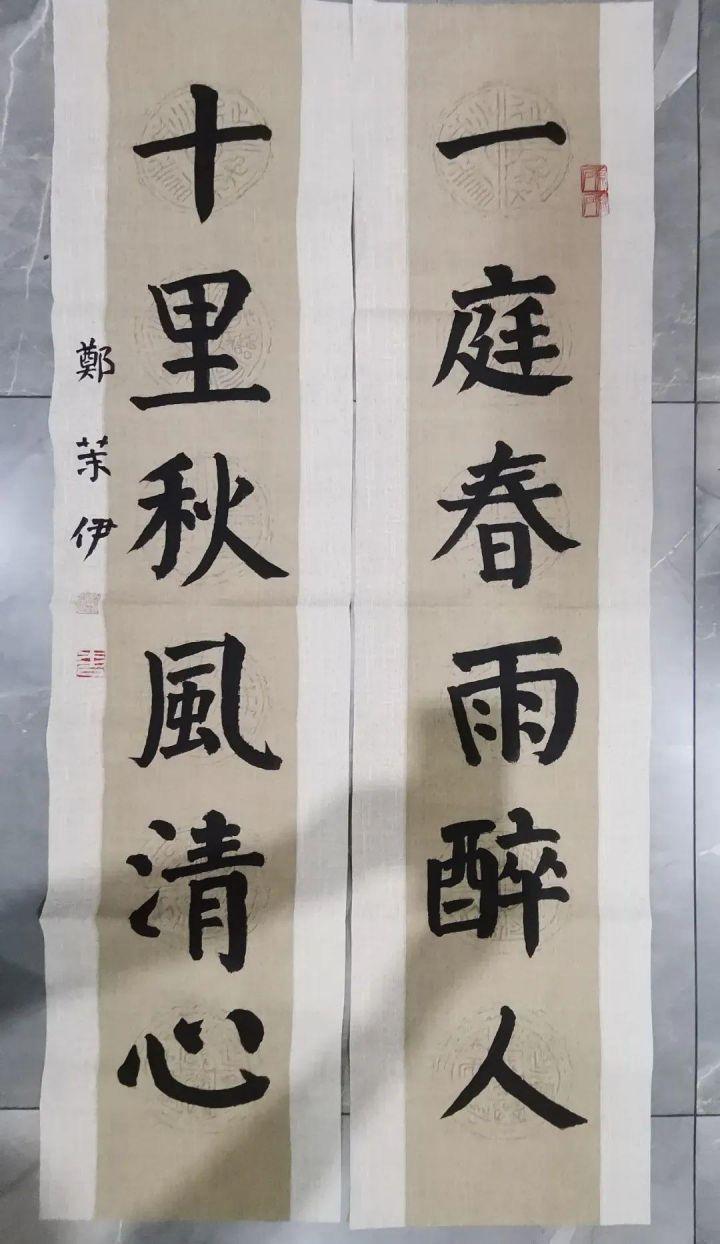 一庭春雨醉人
十里秋風清心
鄭茉伊